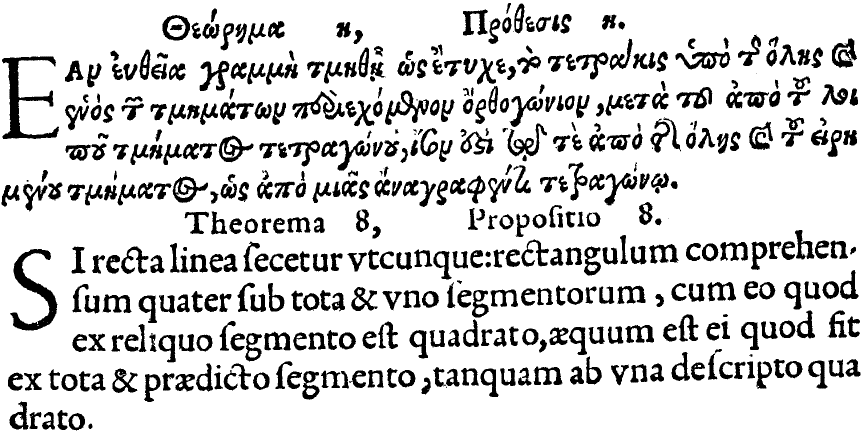 Θεώρημα η, Πρόθεσις η.
ΕΑν ἐυθεῖα γραμμὴ τμηθῇ ὡς ἔτυχε, τὸ τετράκις ὑπὸ τ͂ ὅλης καὶ
ἑνὸς τ͂ τμημάτων περιεχόμενον ὀρθογώνιον, μετὰ τοῦ ἀπὸ τοῦ λοι
ποῦ τμήματος τετραγώνου, ἴσον ἐστὶ τῷ τὲ ἀπὸ τῆς ὅλης καὶ τοῦ εἰρη
μένου τμήματος, ὡς ἀπὸ μιᾶς ἀναγραφέντι τετραγώνῳ.
Theorema 8, Propoſitio 8.
SI recta linea ſecetur vtcunque:rectangulum comprehen-
ſum quater ſub tota & vno ſegmentorum, cum eo quod
ex reliquo ſegmento eſt quadrato, æquum eſt ei quod fit
ex tota & prædicto ſegmento, tanquam ab vna deſcripto qua
drato.